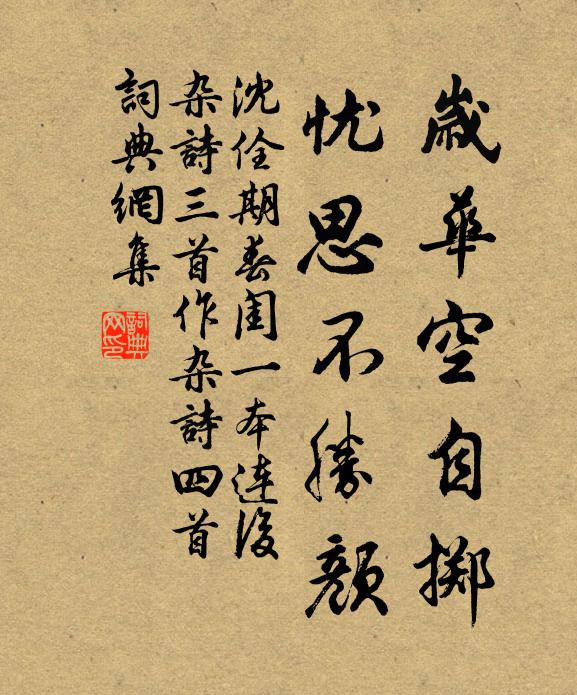 歲華空自擲
忧思不勝顏
沈佺期春閨一本連後
杂詩三首作杂詩四首
詞典網集
詞典網印